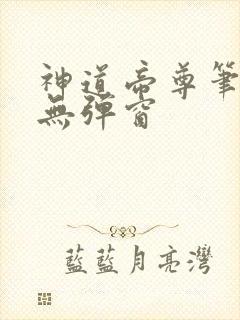 神道帝尊筆
無彈窗
藍藍月亮灣